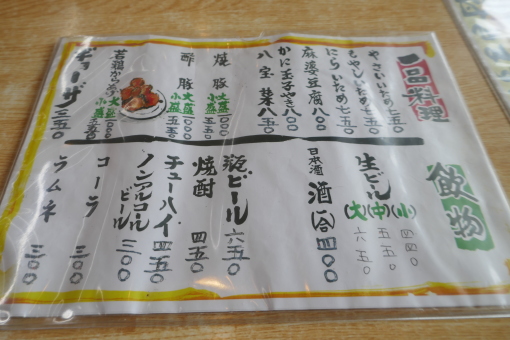 一品料理
やさいいため七五〇
もやしいため
にらいため七五〇
麻婆豆腐八〇〇
かに玉子やき八〇〇
八宝菜八五〇
焼豚
大盛
小盛
酢豚
大盛
小盛 五五〇
若鶏から揚
大盛
小盛
ギョーザ 三五〇
飲物
生ビール
(小) 四四〇
(中) 五五〇
(大) 六五〇
日本酒 酒(一合)四〇〇
瓶ビール 六五〇
焼酎 四五〇
チューハイ 四五〇
ノンアルコールビール 三〇〇
コーラ 三〇〇
ラムネ 三〇〇